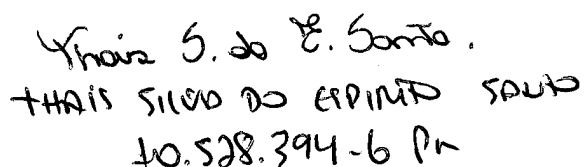 Thais S. do E. Santo.
THAIS SILVA DO ESPIRITO SANTO
10.528.394-6 Pr